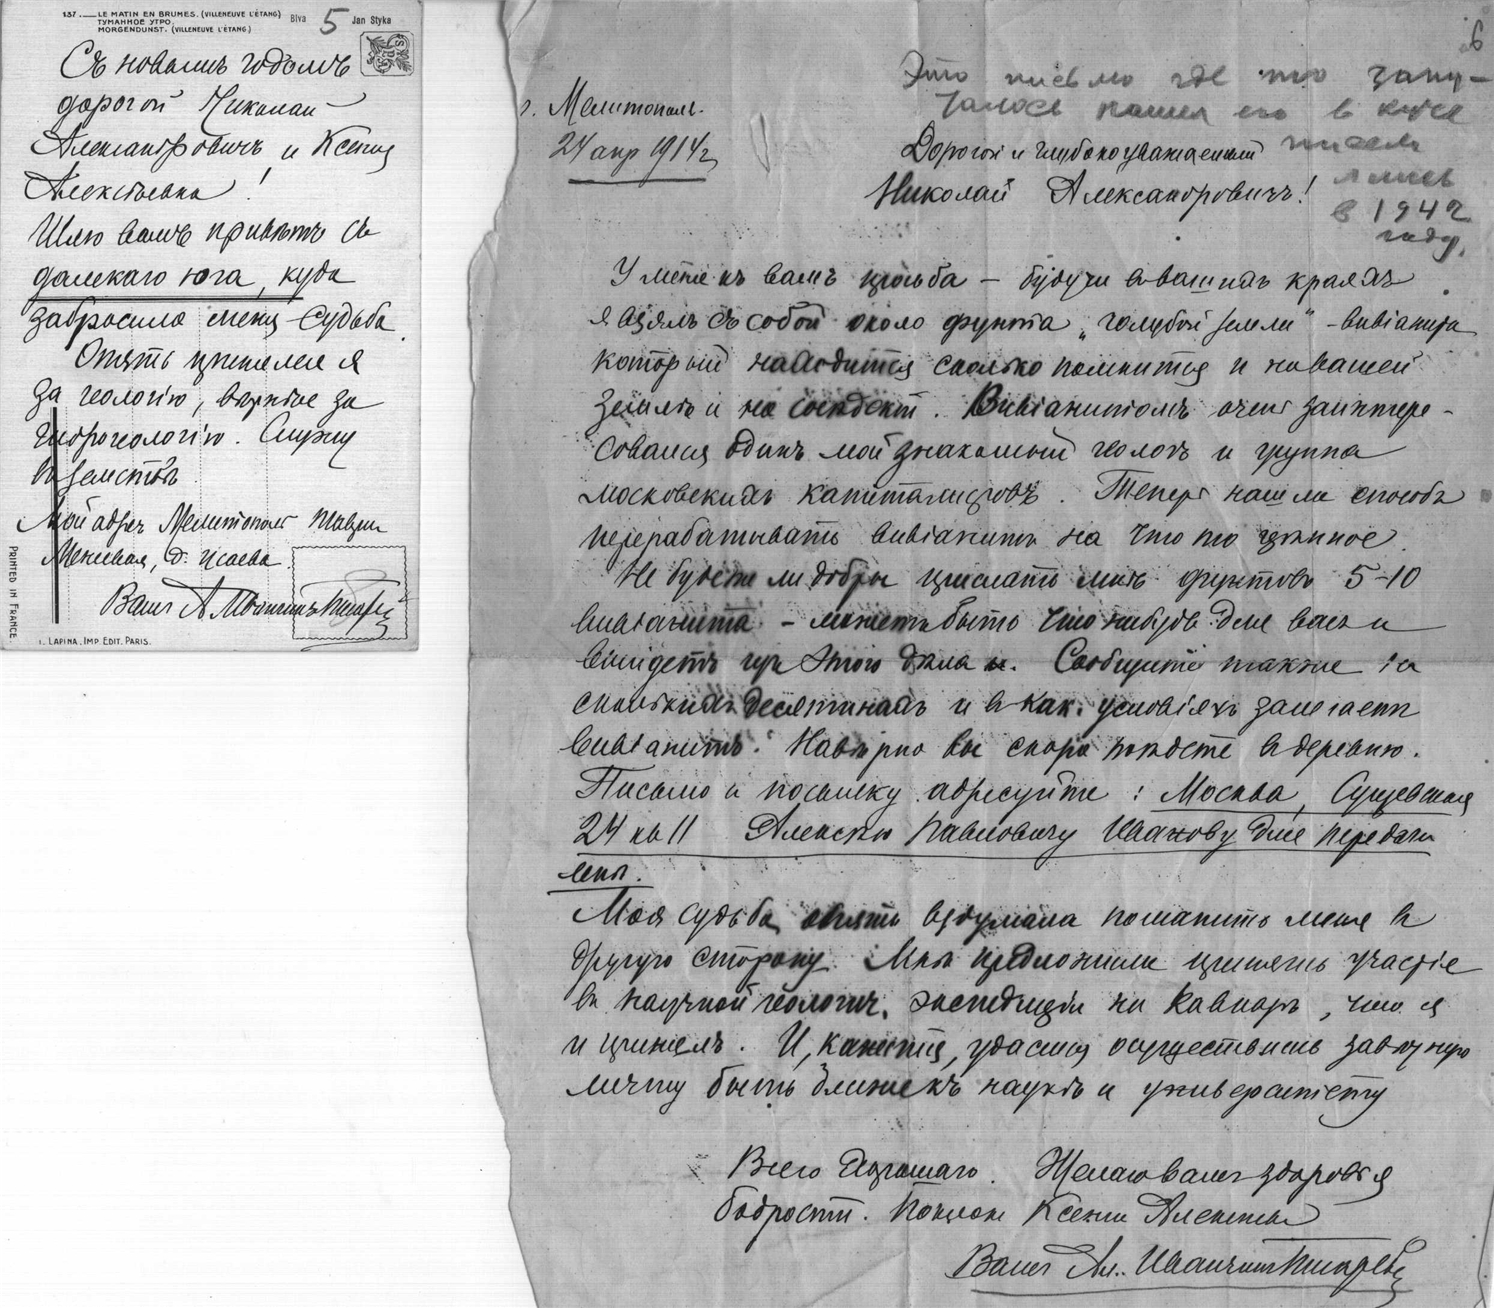 137.—LE MATIN EN BRUMES. (VILLENEUVE L'ÉTANG)
ТУМАННОЕ УТРО.
MORGENDUNST. (VILLENEUVE L'ÉTANG.)
Biva 5 Jan Styka
Съ новымъ годомъ
дорогой Николай
Александровичъ и Ксения
Алексѣевна!
Шлю вамъ привѣтъ съ
далекаго юга, куда
забросила меня судьба
Опять принялся я
за геологію, вѣрнѣе за
гидрогеологію. Служу
въ земствѣ.
Мой адресъ Мелитополь Таврич
Межевая, д. Исаева.
Вашъ А Иванчинъ Писаревъ
PRINTED IN FRANCE.
I. LAPINA. IMP. EDIT. PARIS.
6
Это письмо где то запу-
талось нашел его в куче
писем
в 1942
году.
г. Мелитополь.
24 апр 1914г
Дорогой и глубокоуважаемый
Николай Александровичъ!
У меня къ вамъ просьба – будучи въ вашихъ краяхъ
я взялъ съ собой около фунта „голубой земли" – вивіанита
который находится сколько помнится и на вашей
землѣ и на сосѣдней. Вивіанитомъ очень заинтере-
совался одинъ мой знакомый геологъ и группа
московскихъ капиталистовъ. Теперь нашли способъ
перерабатывать вивіанитъ на что то цѣнное.
Не будете ли добры прислать мнѣ фунтовъ 5–10
вивіанита – можетъ быть что нибудь для васъ и
выйдетъ изъ этого дѣла. Сообщите также на
сколькихъ десятинахъ и в как. условіяхъ залегаетъ
вивіанитъ. Навѣрно вы скоро поѣдете въ деревню.
Письмо и посылку адресуйте: Москва, Сущевская
24 кв 11 Алексѣю Павловичу Иванову для передачи
мнѣ.
Моя судьба опять вздумала поманить меня въ
другую сторону. Мнѣ предложили принять участіе
въ научной геологич. экспедиціи на Кавказъ, что я
и принялъ. И, кажется, удастся осуществить завѣтную
мечту быть ближе къ наукѣ и университету
Всего хорошаго. Желаю вамъ здоровья
бодрости. Поклон Ксении Алексѣевнѣ
Вашъ Ал. Иванчинъ Писаревъ